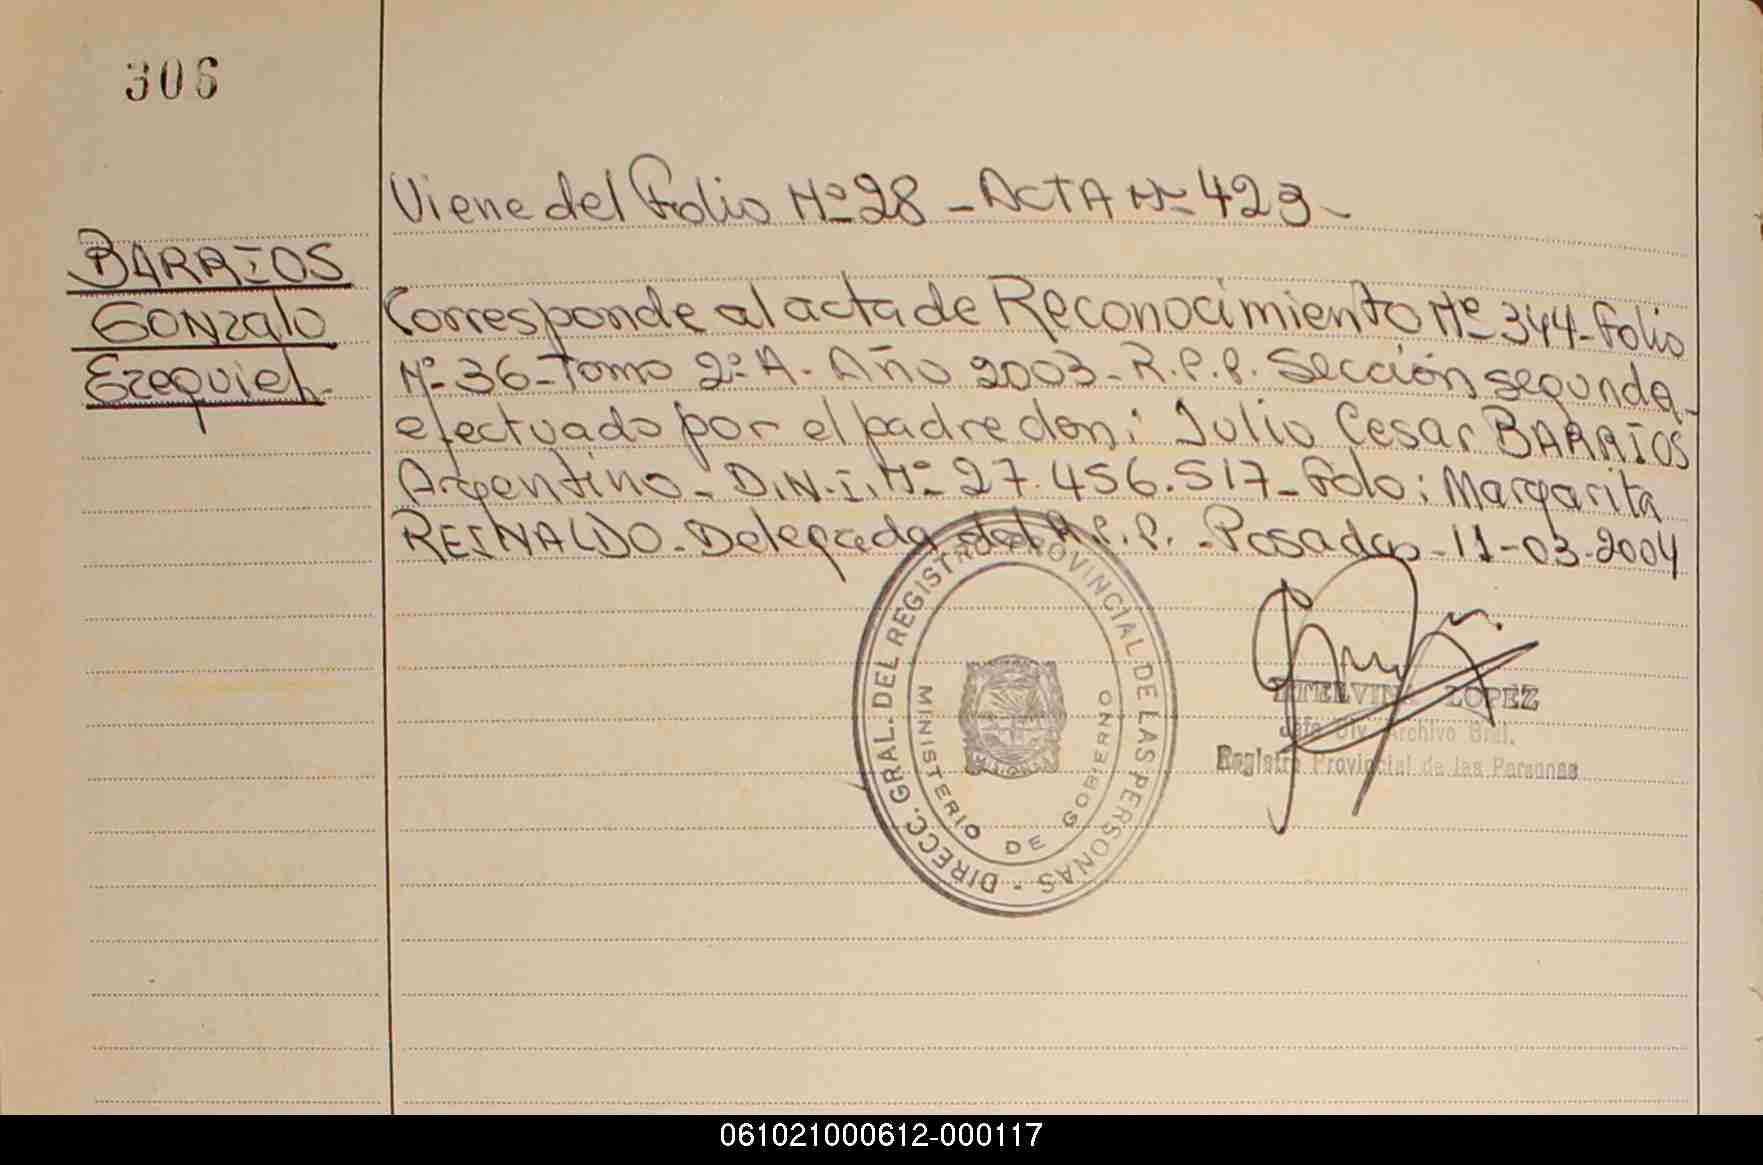 306
Viene del Folio Nº 28 - ACTA Nº 423-
BARRIOS
Gonzalo
Ezequiel.-
Corresponde al acta de Reconocimiento Nº 344- Folio
Nº 36- Tomo 2º A. Año 2003- R.P.P. Sección segunda-
efectuado por el padre don: Julio Cesar BARRIOS
Argentino- D.N.I. Nº 27.456.517- Fdo: Margarita
REINALDO- Delegada del R.P.P.- Posadas- 11-03-2004
DIRECC. GRAL. DEL REGISTRO PROVINCIAL DE LAS PERSONAS -
MINISTERIO DE GOBIERNO
LOPEZ
Jefe Div. Archivo Gral.
Registro Provincial de las Personas
061021000612-000117